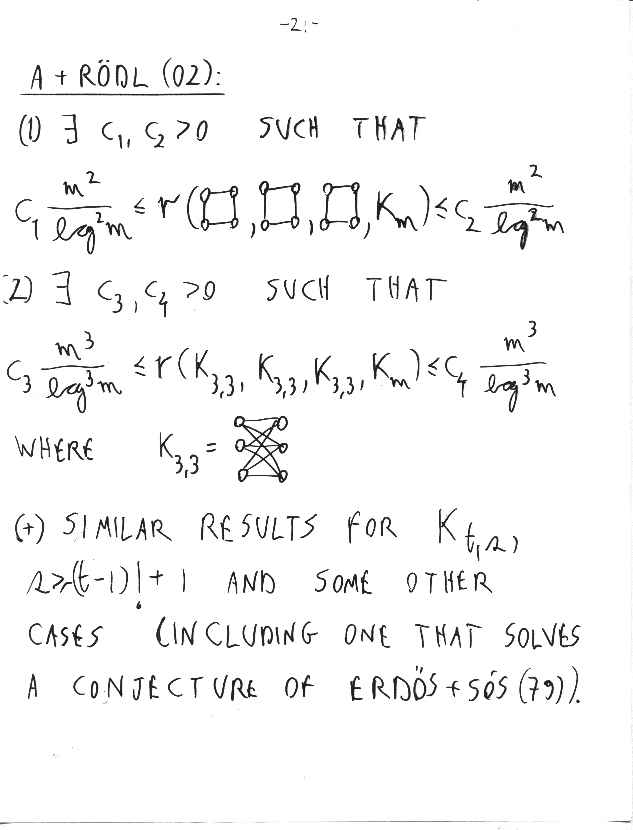 -2-
A + RÖDL (02):
(1) ∃ C₁, C₂ >0 SUCH THAT
C₁ m²/lg²m ≤ r(□, □, □, Kₘ) ≤ C₂ m²/lg²m
2) ∃ C₃, C₄ >0 SUCH THAT
C₃ m³/log³m ≤ r(K₃,₃, K₃,₃, K₃,₃, Kₘ) ≤ C₄ m³/log³m
WHERE K₃,₃ =
(+) SIMILAR RESULTS FOR K_{t,s},
s ≥ (t-1)! + 1 AND SOME OTHER
CASES (INCLUDING ONE THAT SOLVES
A CONJECTURE OF ERDÖS + SÓS (79)).